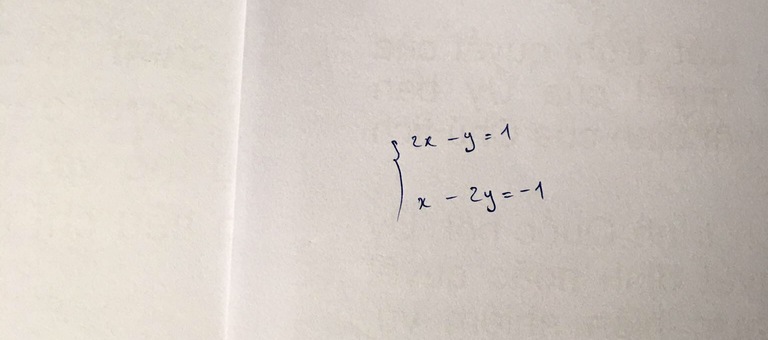 2x - y = 1
x - 2y = -1